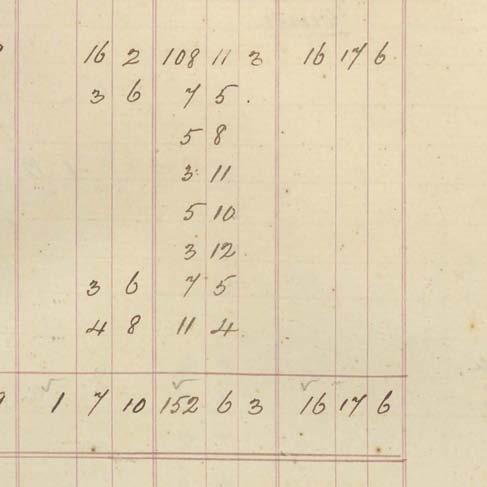 16 2 108 11 3 16 17 6
3 6 7 5
5 8
3 11
5 10
3 12
3 6 7 5
4 8 11 4
1 7 10 152 6 3 16 17 6